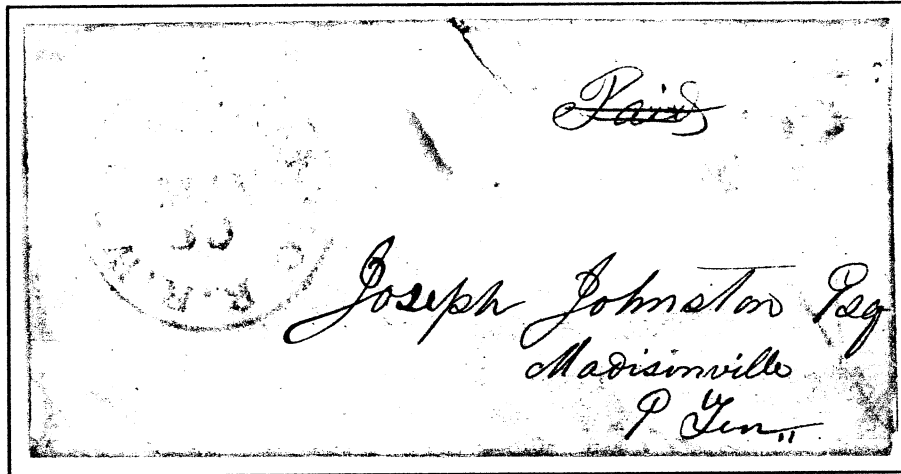 Paid
R.R.
Joseph Johnston Esq
Madisonville
E Ten,,